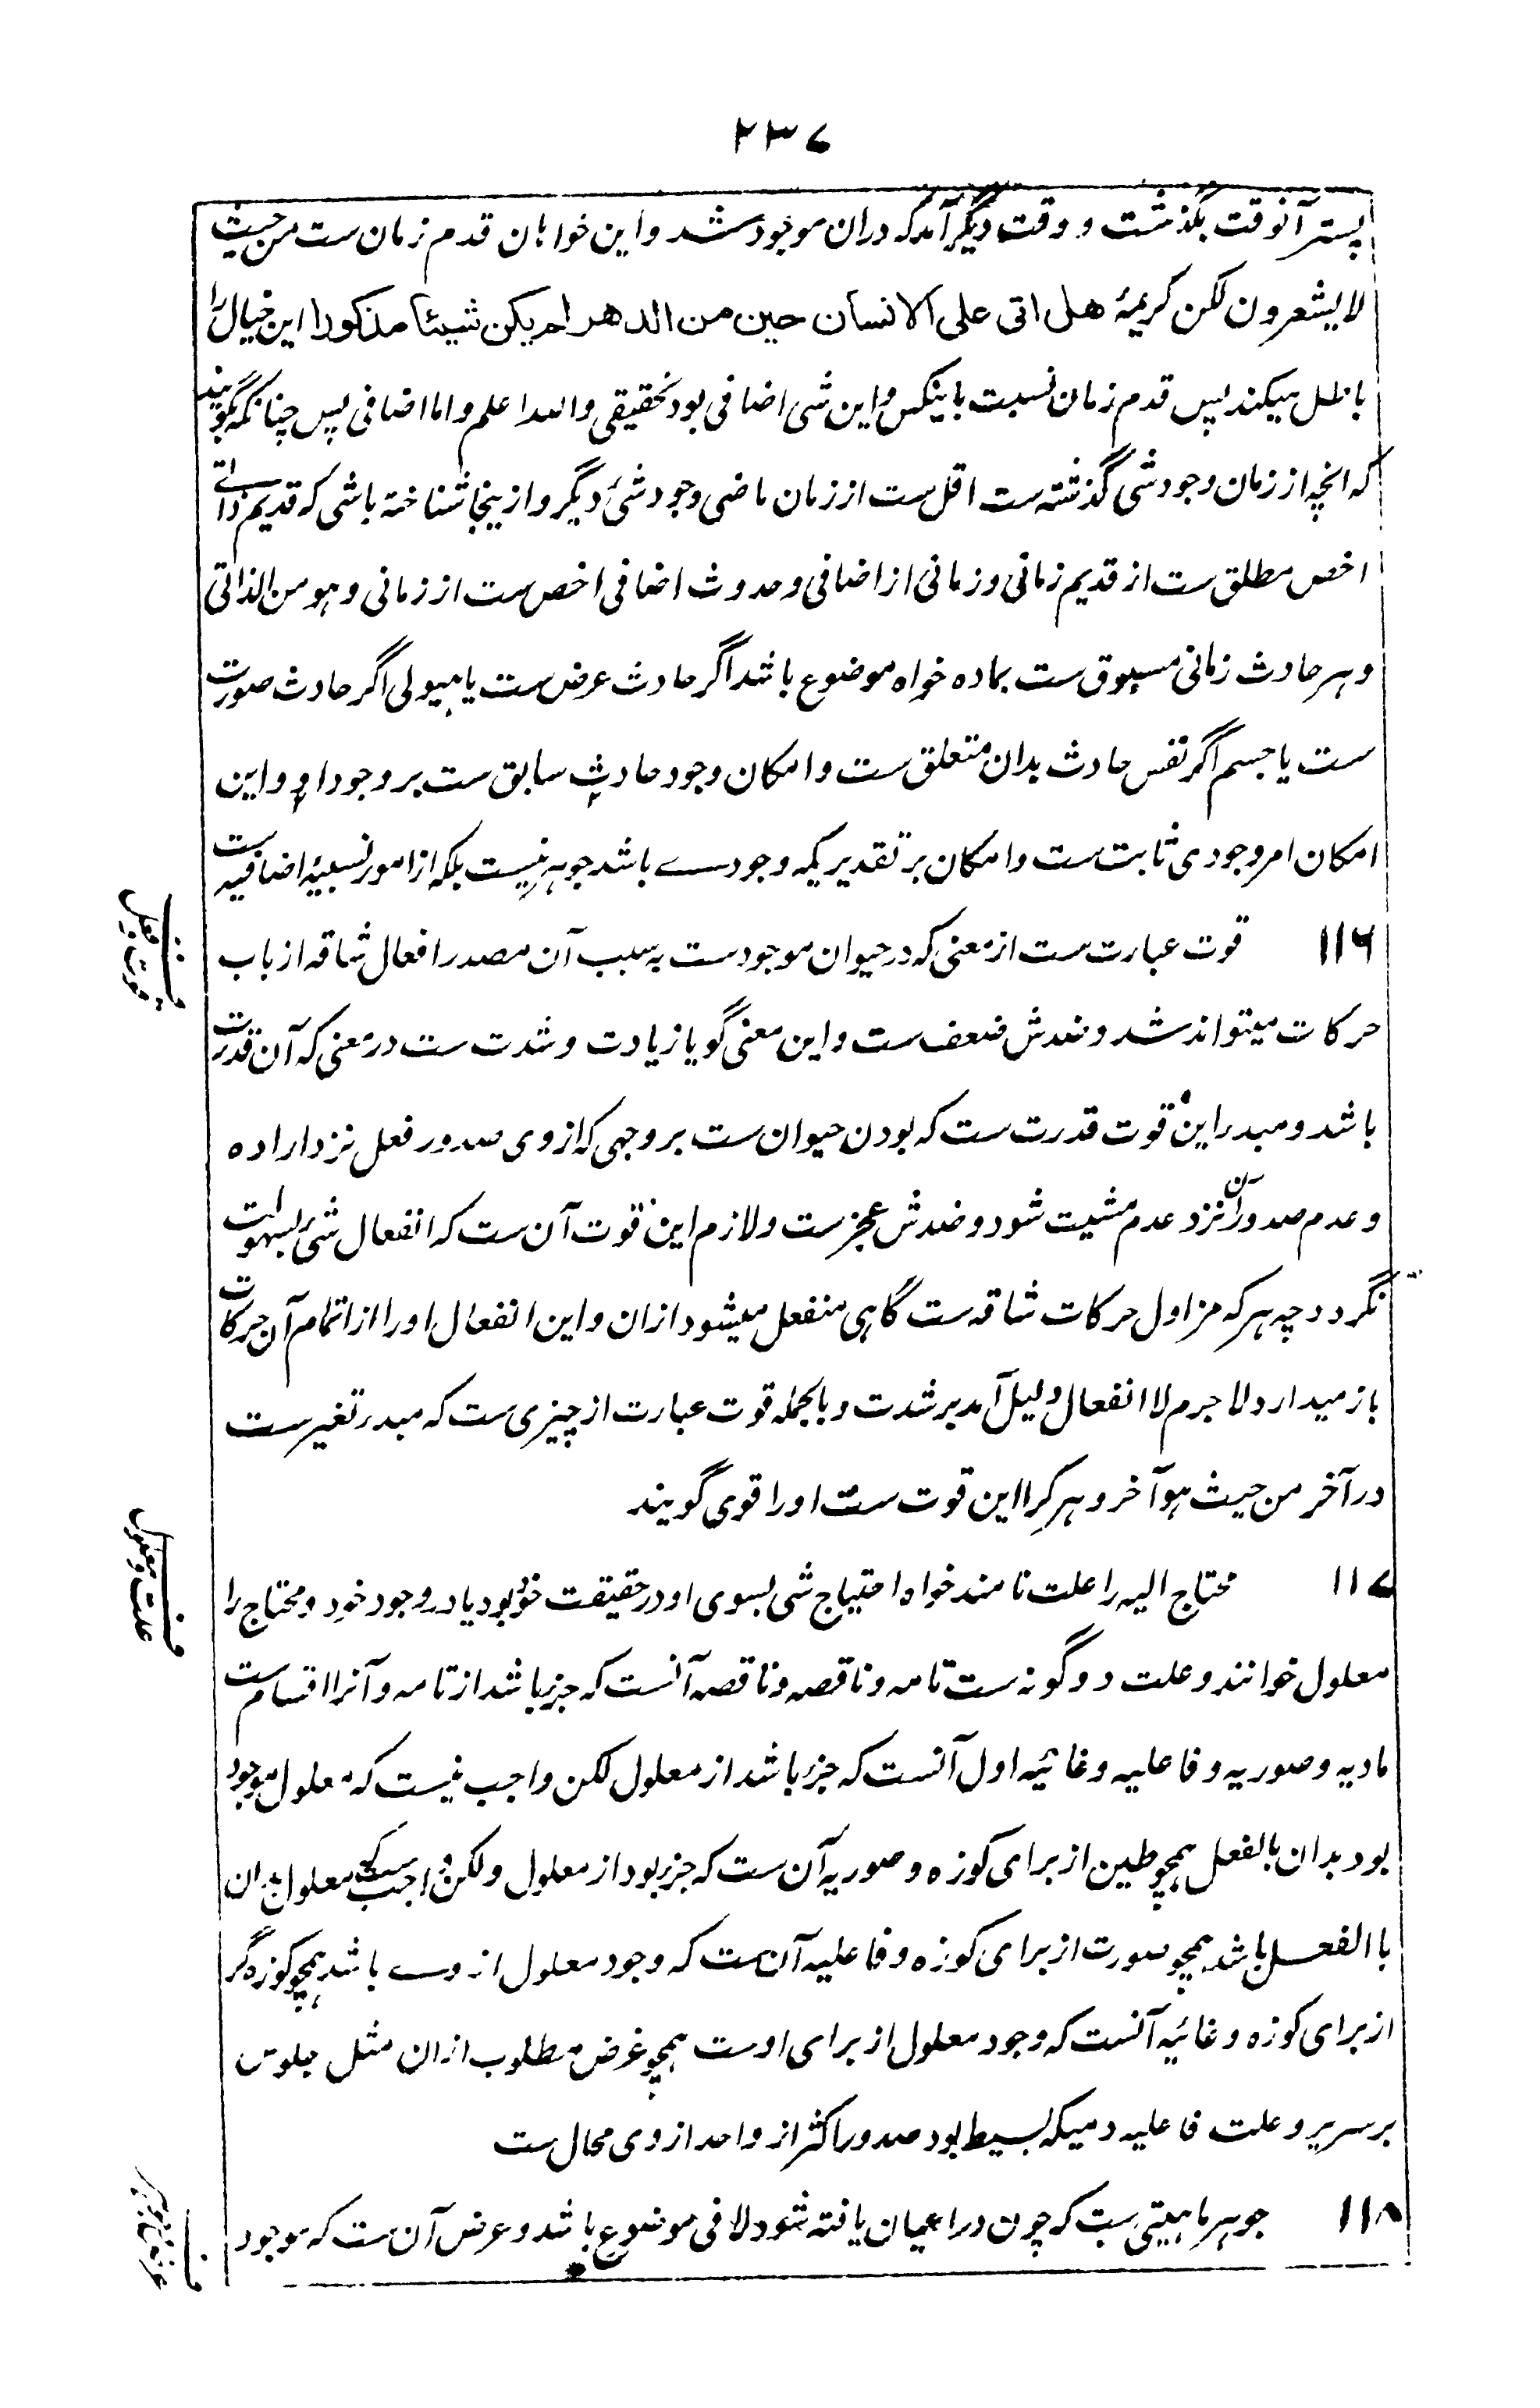 ۲۳۷
پستر آنوقت بگذشت و وقت دیگر آمد که دران موجود شد و این خواہان قدم زمان ست من حیث
لا یشعرون لکن کریمۂ هل اتی علی الانسان حین من الدهر لم یکن شیئا مذکورا این خیال را
باطل میکند پس قدم زمان نسبت باینکس و این شی اضافی بود نحقیقی واللہ اعلم و اما اضافی پس چنانکہ گویند
کہ انچہ از زمان وجود شی گذشتہ ست اقل ست از زمان ماضی وجود شیٔ دیگر و ازینجا شناختہ باشی کہ قدیم ذاتی
اخص مطلق ست از قدیم زمانی و زمانی از اضافی و حدوث اضافی اخص ست از زمانی و ہو من الذاتی
و ہر حادث زمانی مسبوق ست بمادہ خواہ موضوع باشد اگر حادث عرض ست یا ہیولی اگر حادث صورت
ست یا جسم اگر نفس حادث بدان متعلق ست و امکان وجود حادث سابق ست بر وجود او و این
امکان امر وجودی ثابت ست و امکان بر تقدیریکہ وجودے باشد جوہر نیست بلکہ از امور نسبیۂ اضافیہ ست
۱۱۶ قوت عبارت ست از معنی کہ در حیوان موجود ست بہ سبب آن مصدر افعال شاقہ از باب
ف قوت و فعل
حرکات میتواند شد و ضدش ضعف ست و این معنی گویا زیادت و شدت ست در معنی کہ آن قدرت
باشد و مبدر این قوت قدرت ست کہ بودن حیوان ست بر وجہی کہ از وی صدور فعل نزد ارادہ
و عدم صدور آن نزد عدم مشیت شود و ضدش عجز ست و لازم این قوت آن ست کہ انفعال شی بسہولت
نگردد چہ ہر کہ مزاول حرکات شاقہ ست گاہی منفعل میشود ازان و این انفعال او را از اتمام آن حرکات
باز میدارد لا جرم لا انفعال دلیل آمد بر شدت و بالجملہ قوت عبارت از چیزی ست کہ مبدر تغیر ست
در آخر من حیث ہو آخر و ہر کرا این قوت ست او را قوی گویند
۱۱۷ محتاج الیہ را علت نامند خواہ احتیاج شی بسوی او در حقیقت خود بود یا در وجود خود و محتاج را
ف علت و معلول
معلول خوانند و علت دو گونہ ست تامہ و ناقصہ و ناقصہ آنست کہ جزء باشد از تامہ و آنرا اقسام ست
مادیہ و صوریہ و فاعلیہ و غائیہ اول آنست کہ جزء باشد از معلول لکن واجب نیست کہ معلول موجود
بود بدان بالفعل ہمچو طین از برای کوزہ و صوریہ آن ست کہ جزء بود از معلول ولکن واجب ست کہ معلول بدان
باالفعل باشد ہمچو صورت از برای کوزہ و فاعلیہ آن ست کہ وجود معلول از وے باشد ہمچو کوزہ گر
از برای کوزہ و غائیہ آنست کہ وجود معلول از برای اوست ہمچو غرض مطلوب ازان مثل جلوس
بر سریر و علت فاعلیہ دمیکہ بسیط بود صدور اکثر از واحد از وی محال ست
۱۱۸ جوہر ماہیتی ست کہ چون در اعیان یافتہ شود لا فی موضوع باشد و عرض آن ست کہ موجود
ف